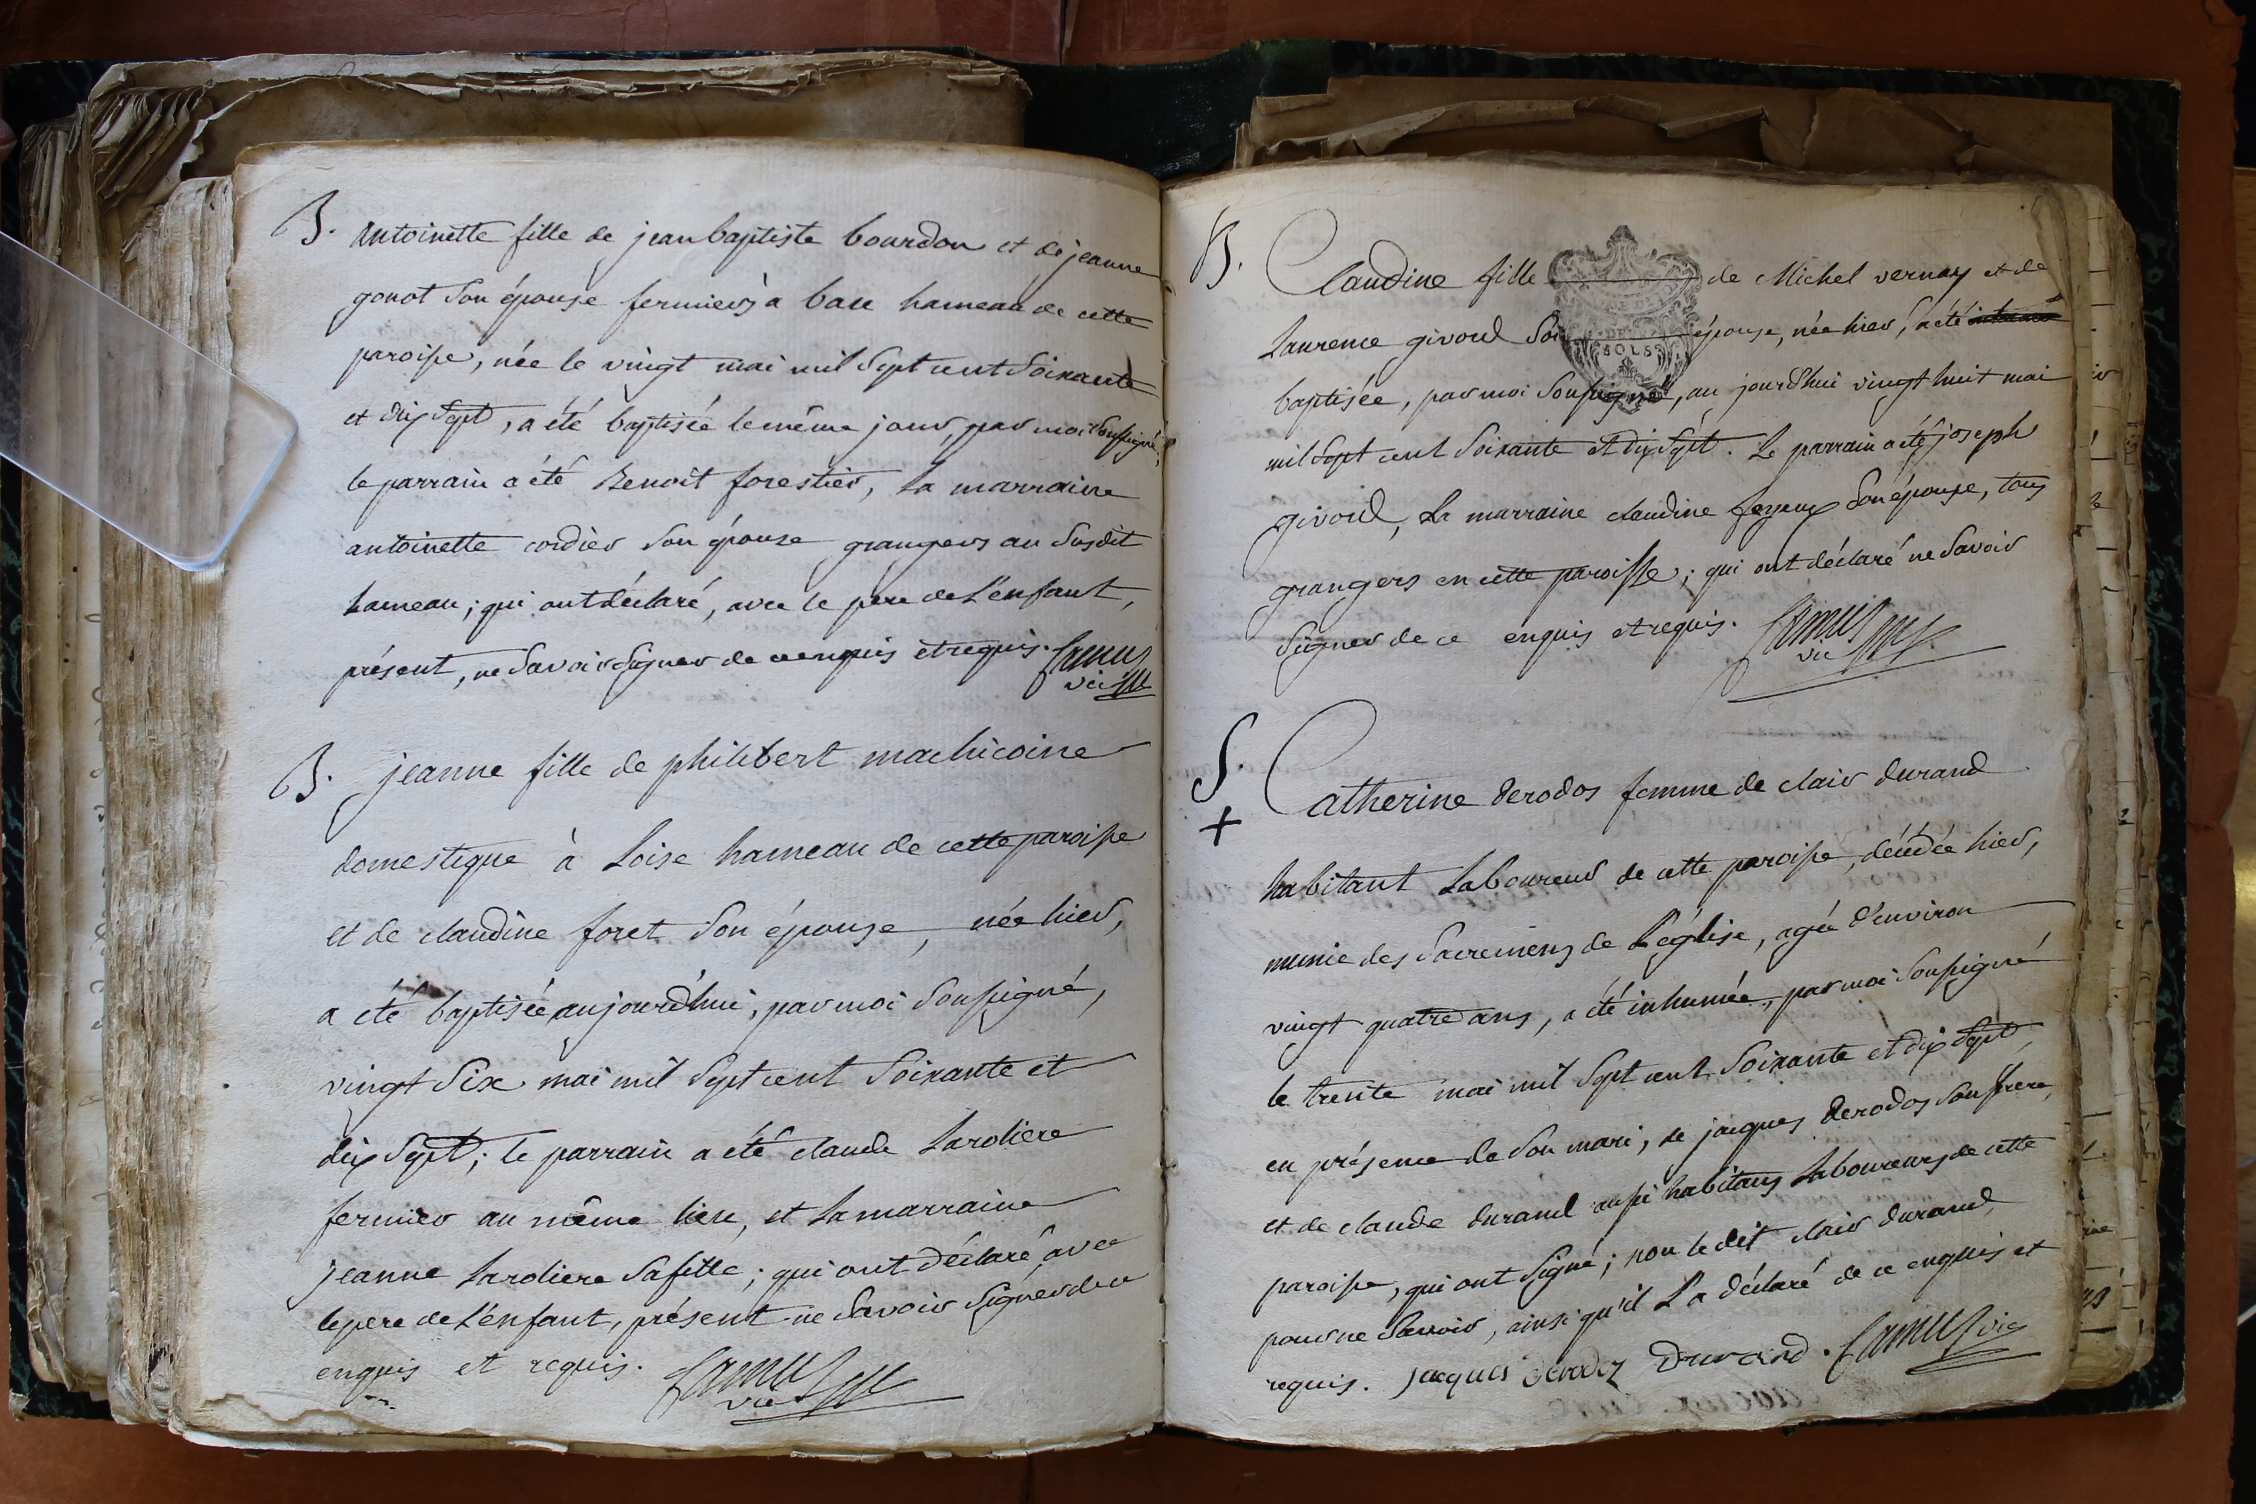 B. antoinette fille de jean baptiste bourdon et de jeanne
gonot son épouse fermiers à base hameau de cette
paroisse, née le vingt mai mil sept cent soixante
et dix sept, a été baptisée le même jour, par moi soussigné,
le parrain a été Benoit forestier, la marraine
antoinette cordier son épouse grangers au susdit
hameau; qui ont déclaré, avec le pere de l'enfant,
présent, ne savoir signer de ce enquis et requis. Camus
vic
B. jeanne fille de philibert machicoine
domestique à Loise hameau de cette paroisse
et de claudine foret son épouse, née hier,
a été baptisée aujourd'hui, par moi soussigné,
vingt six mai mil sept cent soixante et
dix sept; le parrain a été claude Laroliere
fermier au même lieu, et la marraine
jeanne Laroliere sa fille; qui ont déclaré, avec
le pere de l'enfant, présent ne savoir signer de ce
enquis et requis. Camus
vic
B. Claudine fille de Michel vernay et de
Laurence givord son épouse, née hier, a été
baptisée, par moi soussigné, aujourd'hui vingt huit mai
SOLS
mil sept cent soixante et dix sept. Le parrain a été joseph
givord, la marraine claudine feyeux son épouse, tous
grangers en cette paroisse; qui ont déclaré ne savoir
signer de ce enquis et requis. Camus
vic
S. Catherine derodos femme de clair durand
+
habitant Laboureur de cette paroisse, décédée hier,
munie des sacremens de L'église, agée d'environ
vingt quatre ans, a été inhumée, par moi soussigné
le trente mai mil sept cent soixante et dix sept
en présence de son mari, de jacques derodos son frere,
et de claude durand aussi habitans Laboureurs de cette
paroisse, qui ont signé; non le dit clair durand,
pour ne savoir, ainsi qu'il L'a déclaré de ce enquis et
requis. jacques derodoz Durand. Camus vic